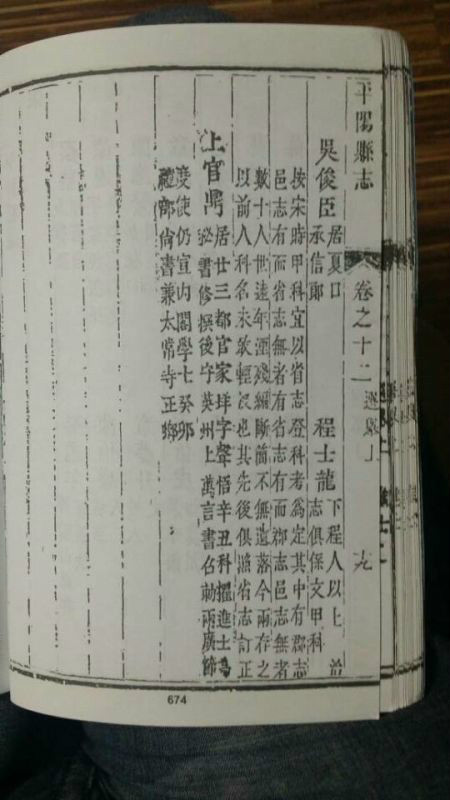 平陽縣志
卷之十二 選舉上
十九
吳俊臣 居夏口 程士龍 下程人以上 前
承信郎 志俱保文甲科
按宋時甲科宜以省志登科者爲定其中有郡志
邑志有而省志無者有省志有而郡志邑志無者
數十人世遠年湮殘編斷簡不無遺落今兩存之
以前人科名未敢輕沒也其先後俱照省志訂正
上官鼎 居廿三都官家垟字聲悟辛丑科擢進士爲
秘書修撰後守英州上萬言書召勅兩廣節
度使仍宣內閣學士癸卯
禮部尚書兼太常寺正卿
674